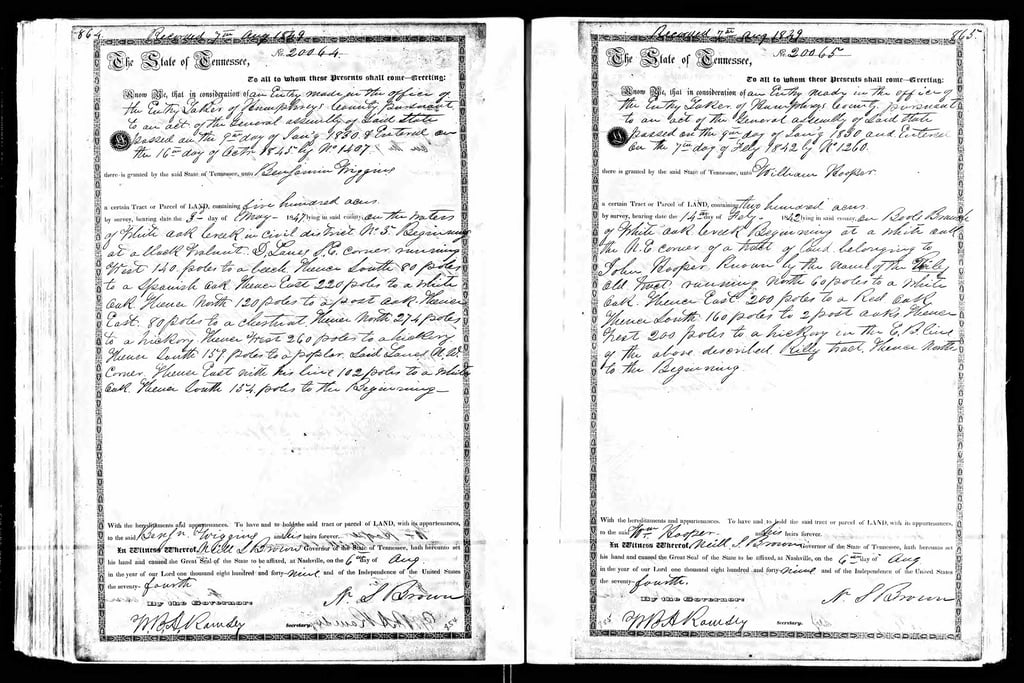 864
Recorded 7th Aug 1849
No. 20064
The State of Tennessee,
To all to whom these Presents shall come—Greeting:
Know Ye, that in consideration of an Entry made in the office of
the Entry Taker of Humphreys County, pursuant
to an act of the General assembly of Said State
passed on the 9th day of Jan'y 1830 & Entered on
the 16th day of Octr 1845 by No 1407
there is granted by the said State of Tennessee, unto Benjamin Wiggins
a certain Tract or Parcel of LAND, containing five hundred acres
by survey, bearing date the 3d day of May 1847 lying in said county, on the waters
of White oak Creek in civil district No 5. Beginning
at a black walnut D. Lanes S. E. corner running
West 140 poles to a beech Thence South 80 poles
to a Spanish oak Thence East 220 poles to a white
oak Thence North 120 poles to a post oak Thence
East 80 poles to a chestnut Thence North 274 poles
to a hickory Thence West 260 poles to a hickory
Thence South 159 poles to a poplar. Said Lanes N. W.
Corner. Thence East with his line 102 poles to a white
oak Thence South 154 poles to the Beginning—
With the hereditaments and appurtenances. To have and to hold the said tract or parcel of LAND, with its appurtenances,
to the said Benj'n Wiggins and his heirs forever.
In Witness Whereof, Neill S Brown Governor of the State of Tennessee, hath hereunto set
his hand and caused the Great Seal of the State to be affixed, at Nashville, on the 6th day of Aug
in the year of our Lord one thousand eight hundred and forty-nine and of the Independence of the United States
the seventy-fourth
By the Governor:
N. S Brown
W B A Ramsey Secretary.
865
Recorded 7th Aug 1849
No. 20065
The State of Tennessee,
To all to whom these Presents shall come—Greeting:
Know Ye, that in consideration of an Entry made in the office of
the Entry Taker of Humphreys County, pursuant
to an act of the General assembly of Said State
passed on the 9th day of Jan'y 1830 and Entered
on the 7th day of Feby 1842 by No 1260.
there is granted by the said State of Tennessee, unto William Hooper
a certain Tract or Parcel of LAND, containing two hundred acres
by survey, bearing date the 14th day of Feby. 1842 lying in said county, on Branch
of White oak Creek Beginning at a white oak
the N. E corner of a tract of land belonging to
John Hooper Known by the name of the
old tract running North 60 poles to a white
oak. Thence East 200 poles to a Red oak
Thence South 160 poles to 2 post oaks Thence
West 200 poles to a hickory in the E. B line
of the above described tract, Thence North
to the Beginning
With the hereditaments and appurtenances. To have and to hold the said tract or parcel of LAND, with its appurtenances,
to the said Wm Hooper and his heirs forever.
In Witness Whereof, Neill S. Brown Governor of the State of Tennessee, hath hereunto set
his hand and caused the Great Seal of the State to be affixed, at Nashville, on the 6th day of Aug
in the year of our Lord one thousand eight hundred and forty-nine and of the Independence of the United States
the seventy-fourth.
By the Governor:
N S Brown
W B A Ramsey Secretary.